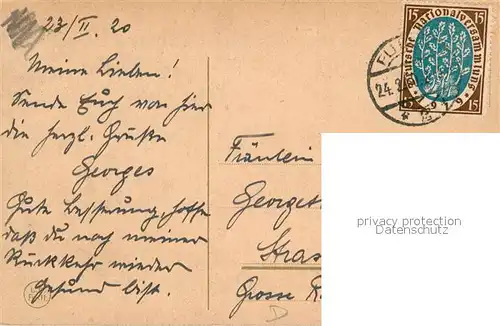 23/II. 20
Meine Lieben!
Sende Euch von hier
die herzl. Grüße
Georges
Gute Besserung, hoffe
daß du nach meiner
Rückkehr wieder
Gesund bist.
Fräulein
Georget
Stras
Grosse R
D
15 15
Deutsche Nationalversammlung
1919
15 15
24.2
privacy protection
Datenschutz